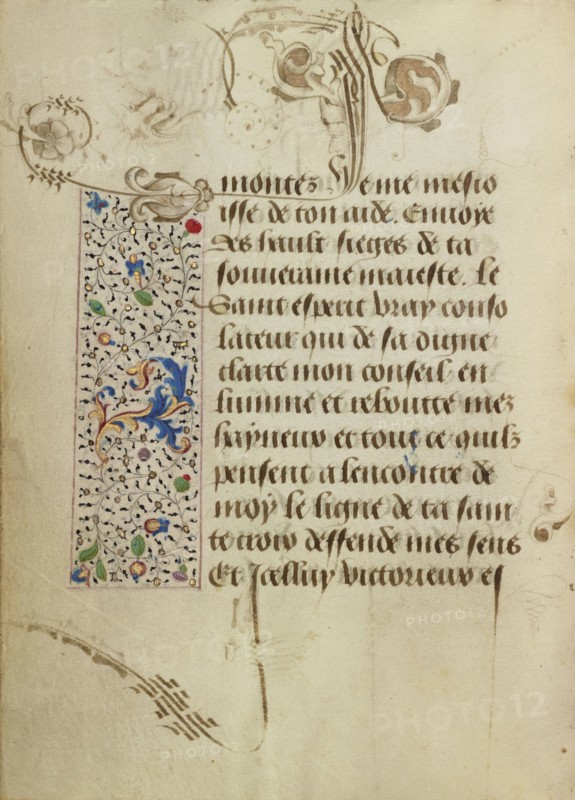 montez Je me
isse de ton aide. Enuoye
des haulx sieges de ta
souueraine maieste. Le
Saint esperit vray conso
lateur qui de sa digne
clarte mon conseil en
lumine et reboutte mez
hayneux et tout ce quilz
pensent a lencontre de
moy le signe de ta sain
te croix deffende mes sens
Et Icelluy victorieux es
PHOTO12
PHOTO12
PHOTO12